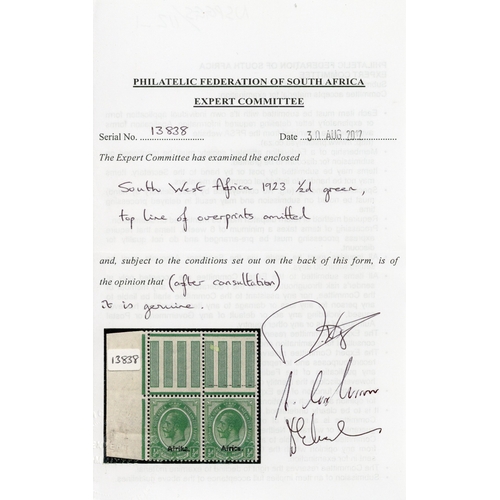 PHILATELIC FEDERATION OF SOUTH AFRICA
EXPERT COMMITTEE
Serial No. 13838 Date 30 AUG 2012
The Expert Committee has examined the enclosed
South West Africa 1923 ½d green,
top line of overprints omitted
and, subject to the conditions set out on the back of this form, is of
the opinion that (after consultation)
it is genuine.
13838
Afrika. Africa.